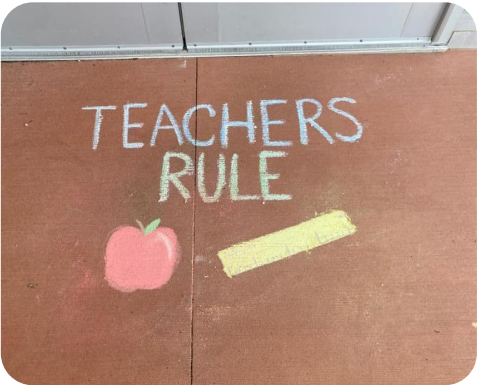 TEACHERS
RULE